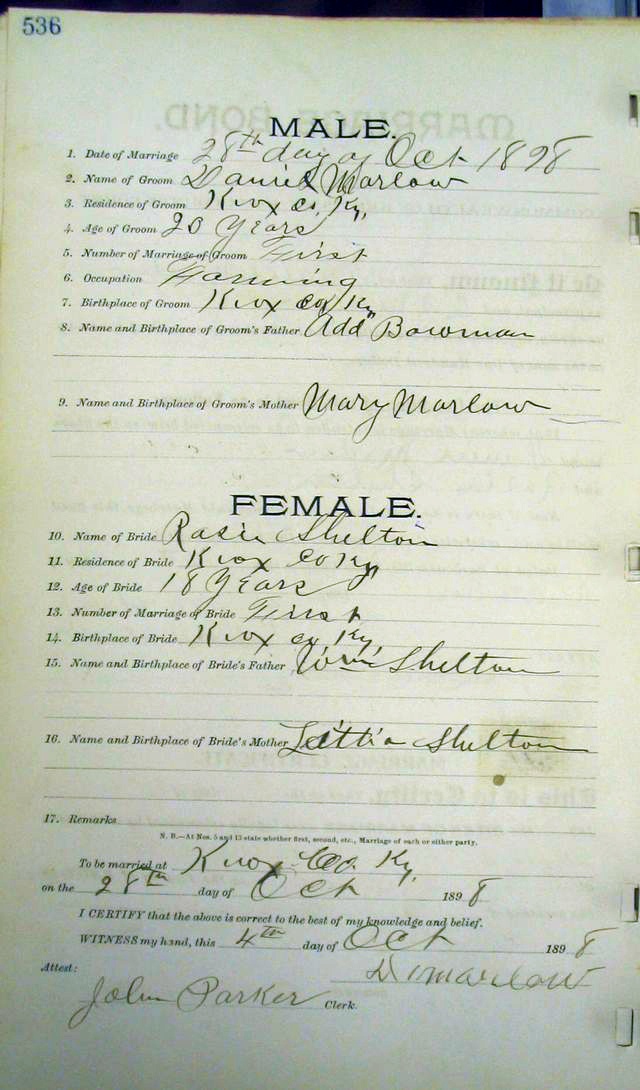 536
MALE.
1. Date of Marriage 28th day of Oct 1898
2. Name of Groom Daniel Marlow
3. Residence of Groom Knox Co, Ky,
4. Age of Groom 20 Years
5. Number of Marriage of Groom First
6. Occupation Farming
7. Birthplace of Groom Knox Co, Ky,
8. Name and Birthplace of Groom's Father Add Bowman
9. Name and Birthplace of Groom's Mother Mary Marlow
FEMALE.
10. Name of Bride Rasie Shelton
11. Residence of Bride Knox Co Ky,
12. Age of Bride 18 Years
13. Number of Marriage of Bride First
14. Birthplace of Bride Knox Co, Ky,
15. Name and Birthplace of Bride's Father Wm Shelton
16. Name and Birthplace of Bride's Mother Lettia Shelton
17. Remarks
N. B.—At Nos. 5 and 13 state whether first, second, etc., Marriage of each or either party.
To be married at Knox Co. Ky.
on the 28th day of Oct 1898
I CERTIFY that the above is correct to the best of my knowledge and belief.
WITNESS my hand, this 4th day of Oct 1898
Marlow
Attest:
John Parker Clerk.